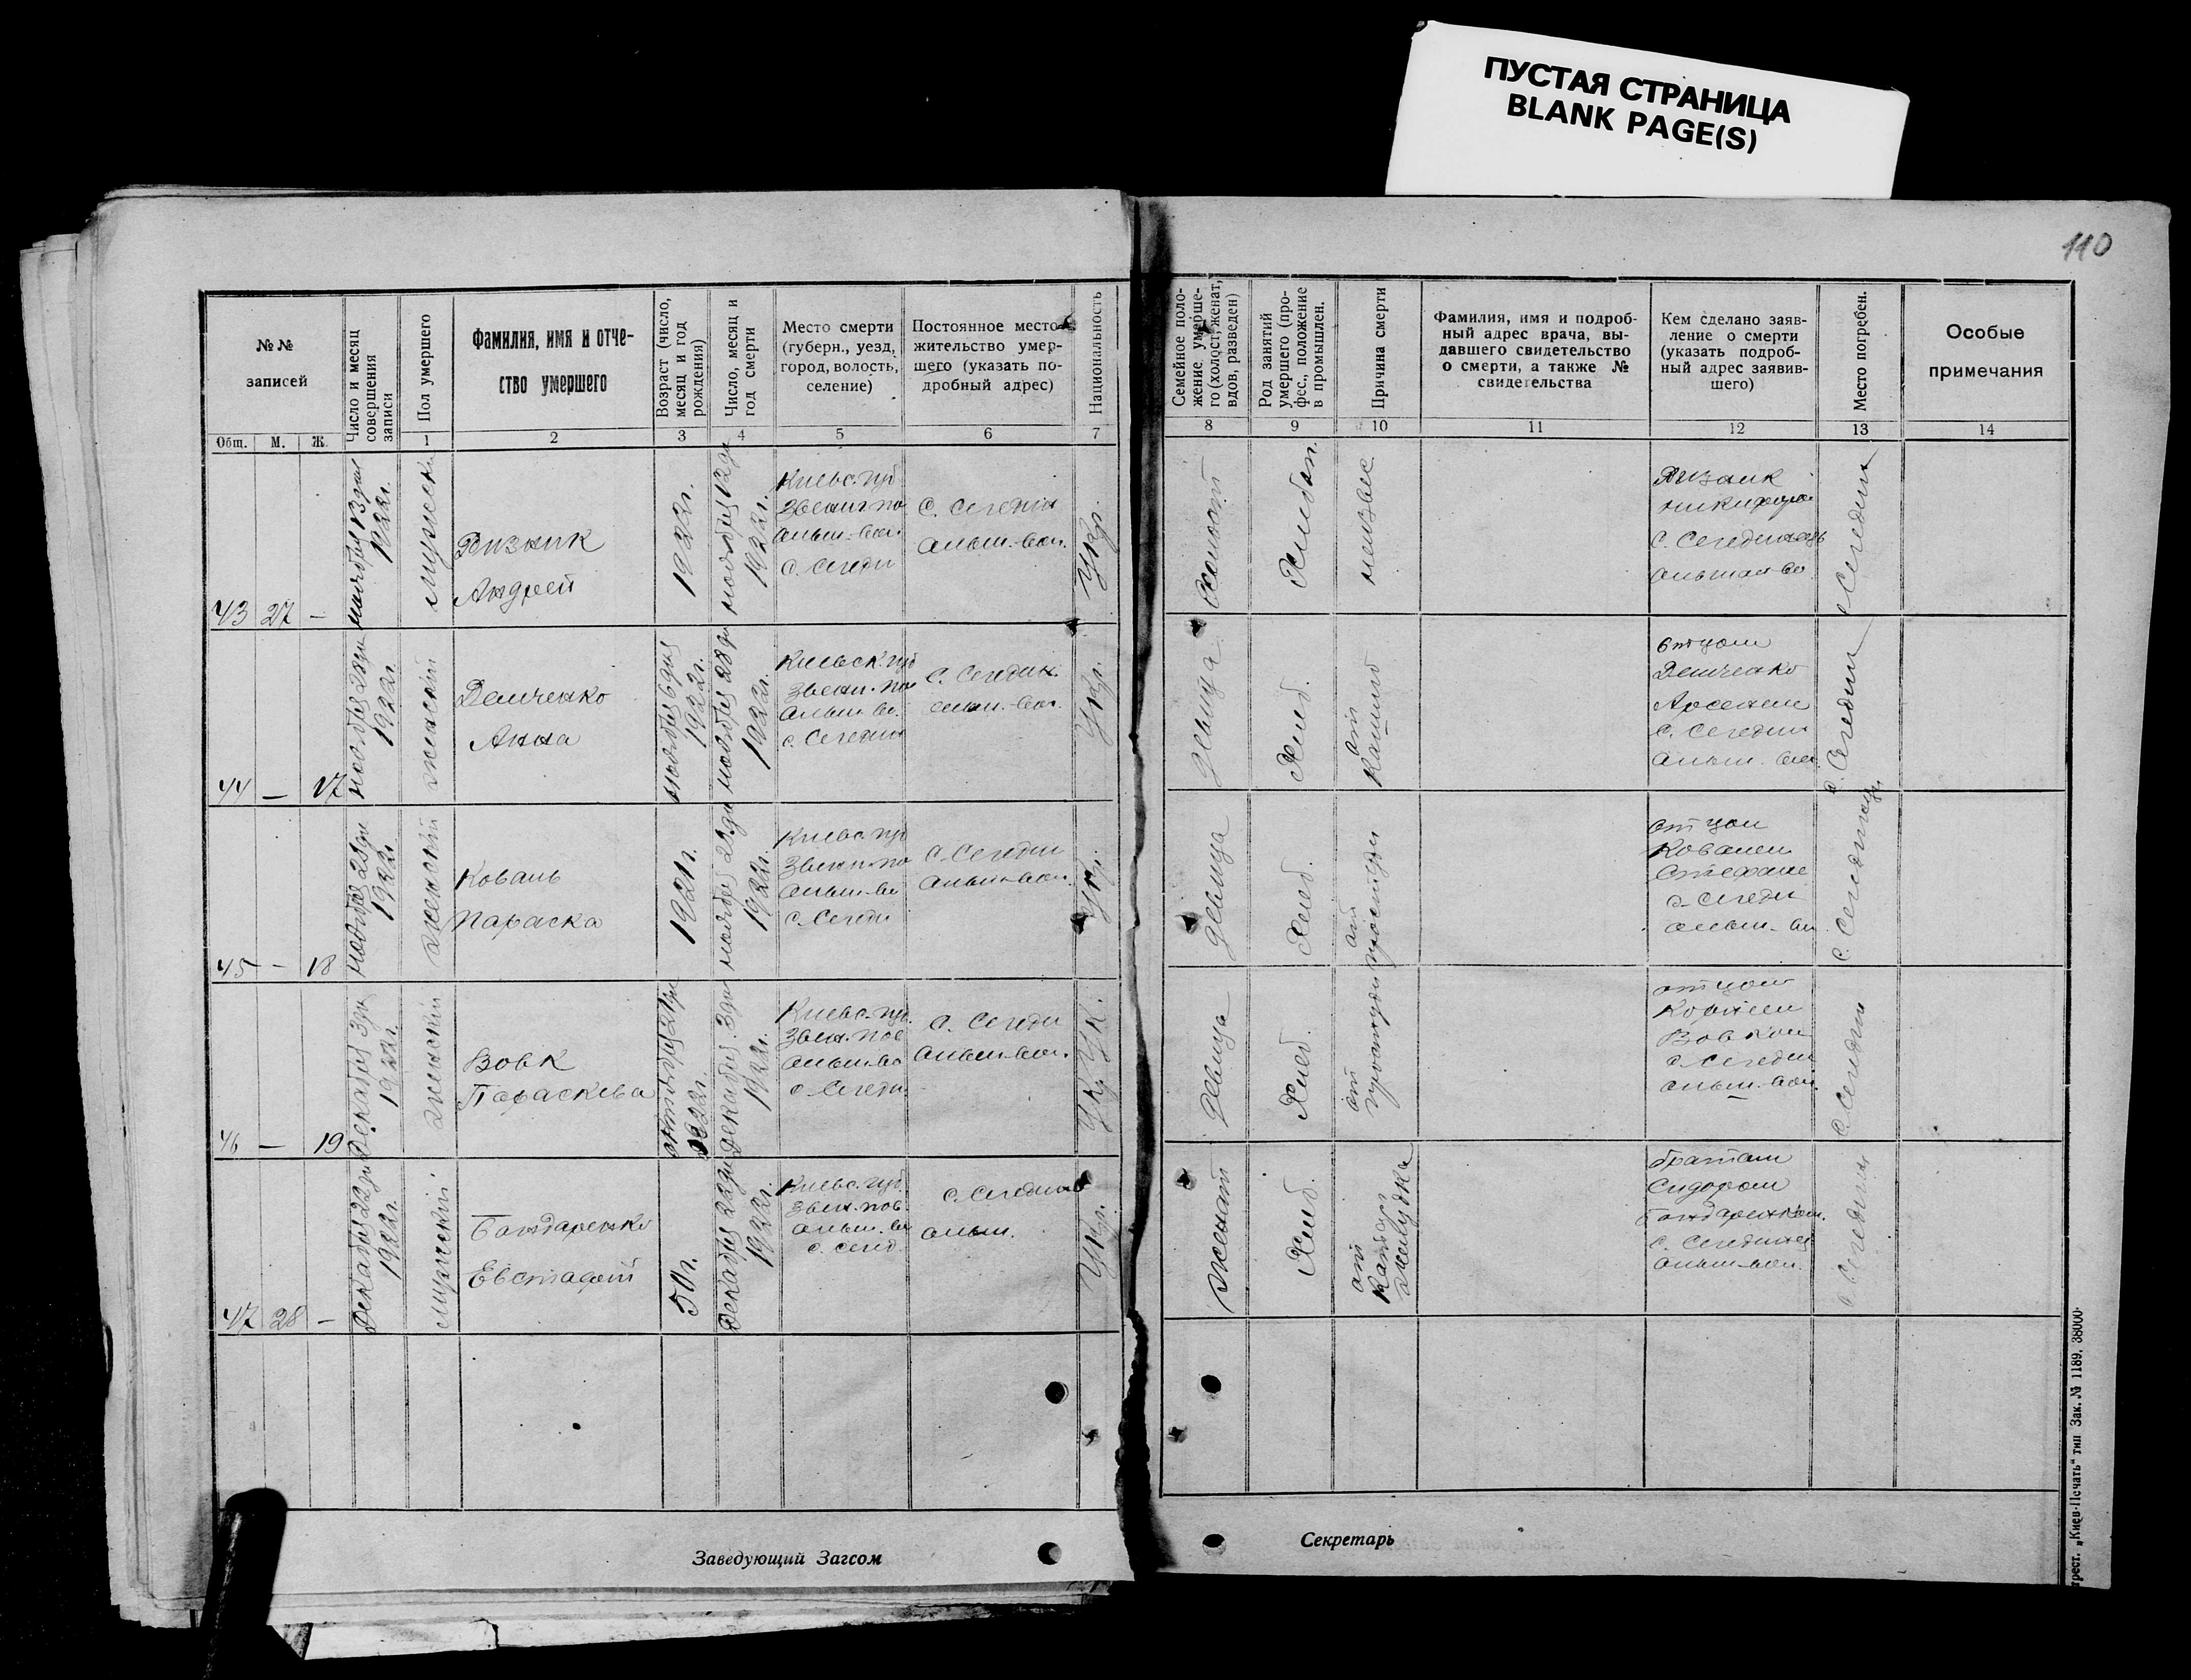 ПУСТАЯ СТРАНИЦА
BLANK PAGE(S)
110
№№
записей
Общ.
М.
Ж.
Число и месяц
совершения
записи
Пол умершего
1
Фамилия, имя и отче-
ство умершего
2
Возраст (число,
месяц и год
рождения)
3
Число, месяц и
год смерти
4
Место смерти
(губерн., уезд,
город, волость,
селение)
5
Постоянное место-
жительство умер-
шего (указать по-
дробный адрес)
6
Национальность
7
Семейное поло-
жение умерше-
го (холост, женат,
вдов, разведен)
8
Род занятий
умершего (про-
фес., положение
в промышлен.
9
Причина смерти
10
Фамилия, имя и подроб-
ный адрес врача, вы-
давшего свидетельство
о смерти, а также №
свидетельства
11
Кем сделано заяв-
ление о смерти
(указать подроб-
ный адрес заявив-
шего)
12
Место погребен.
13
Особые
примечания
14
43
27
–
ноября 13 дня
1922г.
мужеск.
Ризник
Андрей
1922г.
ноября 12 дн
1922г.
Киевс. губ
Звениг. по
Ольш. вол.
с. Сегеди
С. Сегедин
Ольш. вол.
Укр.
Холост
Хлебоп.
неизвес.
Ризник
с. Сегединець
с. Сегедин
44
–
17
ноября 28 дн
1922г.
женский
Демченко
Анна
ноября 6 дня
1922г.
ноября 28 дн
1922г.
Киевск. губ
Звени. по
Ольш. во.
с. Сегедин
С. Сегедин.
Ольш. вол.
Укр.
девица
Хлеб.
от
кашлю
отцом
Демченко
Арсением
с. Сегедин
Ольш. вол.
с. Сегедин
45
–
18
ноября 28 дн
1922г.
женский
Коваль
Параска
1921г.
ноября 28 дн
1922г.
Киевс. губ
Звени. по
Ольш. во
с. Сегеди
С. Сегедин
Ольш. вол.
Укр.
девица
Хлеб.
от
простуды
отцом
Ковалем
Стефаном
с. Сегеди
Ольш. вол
с. Сегединец
46
–
19
Декабря 3 дн
1922г.
женский
Вовк
Параскева
1922г.
Декабря 3 дн
1922г.
Киевс. губ.
Звен. пов
Ольш. во
с. Сегедин.
С. Сегеди
Ольш. вол.
Укр.
девица
Хлеб.
от
простуды
отцом
Корнеем
Вовком
с. Сегедин
Ольш. вол.
с. Сегедин
47
28
–
Декабря 22 дн
1922г.
мужеский
Бондаренко
Евстафий
50г.
Декабря 22 дн
1922г.
Киевс. губ.
Звен. пов.
Ольш. во
с. Сегед.
с. Сегедин
Ольш.
Укр.
женат
Хлеб.
от
катару
желудка
братом
Сидором
Бондаренком.
с. Сегединец
Ольш. вол.
с. Сегедин
Заведующий Загсом
Секретарь
трест. „Киев-Печать“ тип Зак. № 1189. 38000·